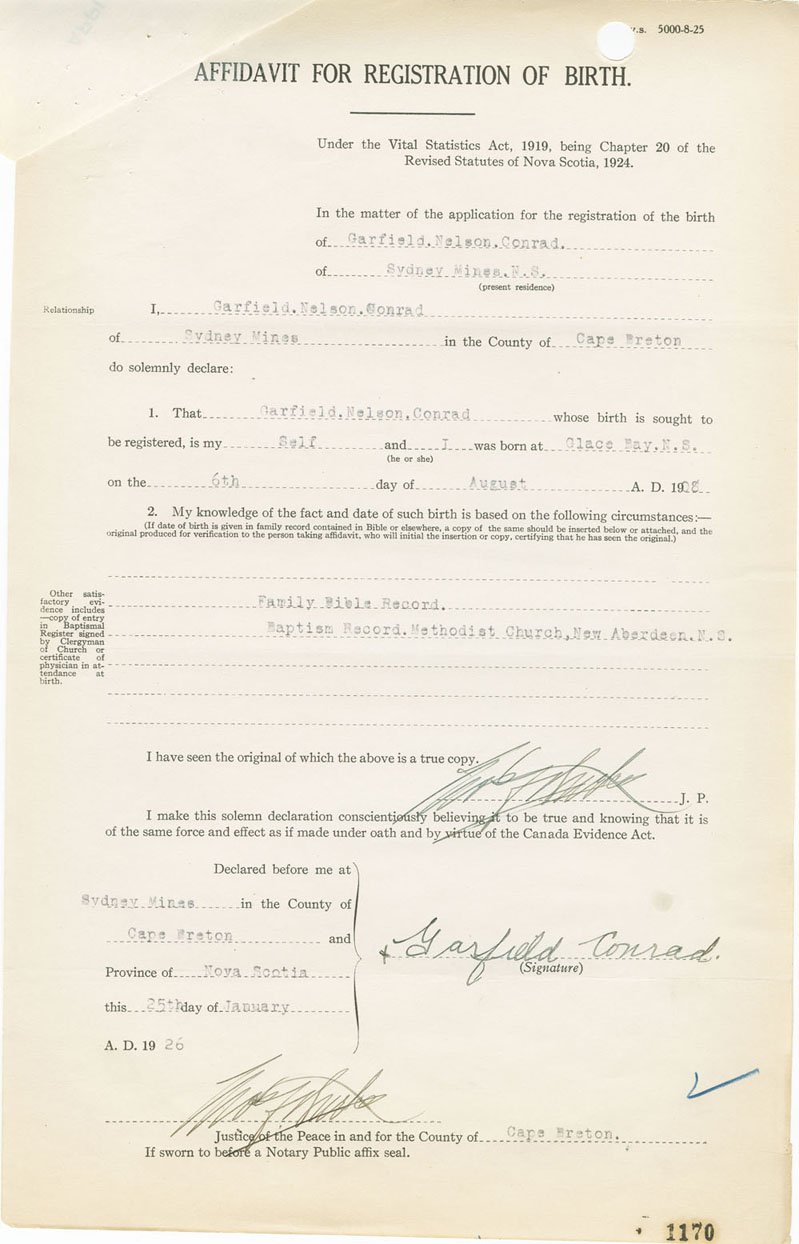 v.s. 5000-8-25
AFFIDAVIT FOR REGISTRATION OF BIRTH.
Under the Vital Statistics Act, 1919, being Chapter 20 of the
Revised Statutes of Nova Scotia, 1924.
In the matter of the application for the registration of the birth
of Garfield.Nelson.Conrad.
of Sydney Mines.N.S.
(present residence)
Relationship I, Garfield.Nelson.Conrad
of Sydney Mines in the County of Cape Breton
do solemnly declare:
1. That Garfield.Nelson.Conrad whose birth is sought to
be registered, is my Self and I was born at Glace Bay.N.S.
(he or she)
on the 6th day of August A. D. 1908
2. My knowledge of the fact and date of such birth is based on the following circumstances:—
(If date of birth is given in family record contained in Bible or elsewhere, a copy of the same should be inserted below or attached, and the
original produced for verification to the person taking affidavit, who will initial the insertion or copy, certifying that he has seen the original.)
Other satis-
factory evi-
dence includes
—copy of entry
in Baptismal
Register signed
by Clergyman
of Church or
certificate of
physician in at-
tendance at
birth.
Family Bible Record.
Baptism Record.Methodist Church,New Aberdeen.N.S.
I have seen the original of which the above is a true copy.
J. P.
I make this solemn declaration conscientiously believing it to be true and knowing that it is
of the same force and effect as if made under oath and by virtue of the Canada Evidence Act.
Declared before me at
Sydney Mines in the County of
Cape Breton and
Province of Nova Scotia
this 25th day of January
A. D. 19 26
Garfield Conrad.
(Signature)
Justice of the Peace in and for the County of Cape Breton.
If sworn to before a Notary Public affix seal.
1170